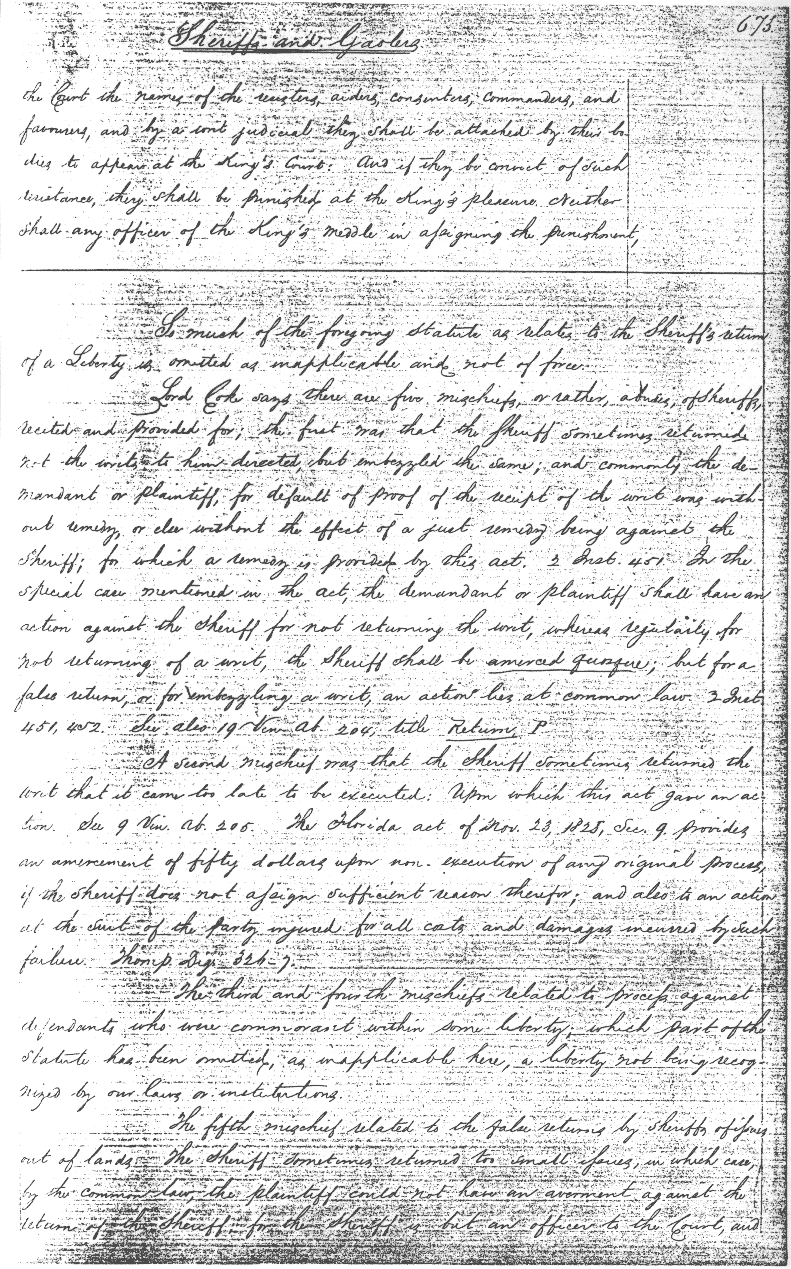 675
Sheriffs and Gaolers
the Court the names of the resisters, aiders, consenters, commanders, and
favourers, and by a writ judicial they shall be attached by their bo
dies to appear at the King's Court: And if they be convict of such
resistance, they shall be punished at the King's pleasure. Neither
shall any officer of the King's meddle in assigning the punishment,
So much of the foregoing statute as relates to the Sheriff's return
of a Liberty is omitted as inapplicable and not of force.
Lord Coke says there are five mischiefs, or rather, abuses, of Sheriffs,
recited and provided for; the first was that the Sheriff sometimes returned
not the writs to him directed, but embezzled the same; and commonly the de-
mandant or plaintiff, for default of proof of the receipt of the writ was with-
out remedy, or else without the effect of a just remedy being against the
Sheriff; for which a remedy is provided by this act. 2 Inst. 451. In the
special case mentioned in the act, the demandant or plaintiff shall have an
action against the Sheriff for not returning the writ, whereas regularly for
not returning of a writ, the Sheriff shall be amerced quosque; but for a
false return, or for embezzling a writ, an action lies at common law. 2 Inst.
451, 452. See also 19 Vin. Ab. 204, title Return, P.
A second mischief was that the Sheriff sometimes returned the
writ that it came too late to be executed: Upon which this act gave an ac-
tion. See 9 Vin. Ab. 205. The Florida act of Nov. 23, 1828, Sec. 9. provides
an amercement of fifty dollars upon non-execution of any original process,
if the Sheriff does not assign sufficient reason therefor; and also to an action
at the suit of the party injured for all costs and damages incurred by such
failure. Thomp. Dig. 326-7.
The third and fourth mischiefs related to process against
defendants who were commorant within some liberty; which part of the
statute has been omitted, as inapplicable here, a liberty not being recog-
nized by our laws or institutions.
The fifth mischief related to the false returns by sheriffs of issues
out of lands. The Sheriff sometimes returned too small issues, in which case,
by the common law, the plaintiff could not have an averment against the
return of the Sheriff, for the Sheriff is but an officer to the Court, and